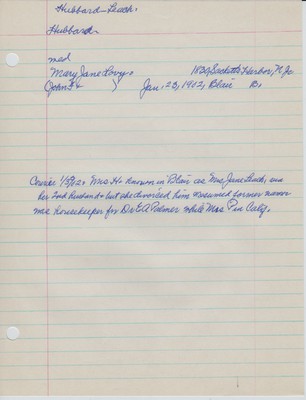 Hubbard-Leach.
Hubbard
med
Mary Jane Lovy. 1830, Sacketts Harbor, N.Y.
(John F + ) Jan. 23, 1912, Blair B.
Courier 1/25/12+ Mrs. H. Known in Blair as Mrs. Jane Leach, was
her 2nd husband + but she divorced him + assumed former name
was housekeeper for Dr. E A Palmer while Mrs P in Calif.